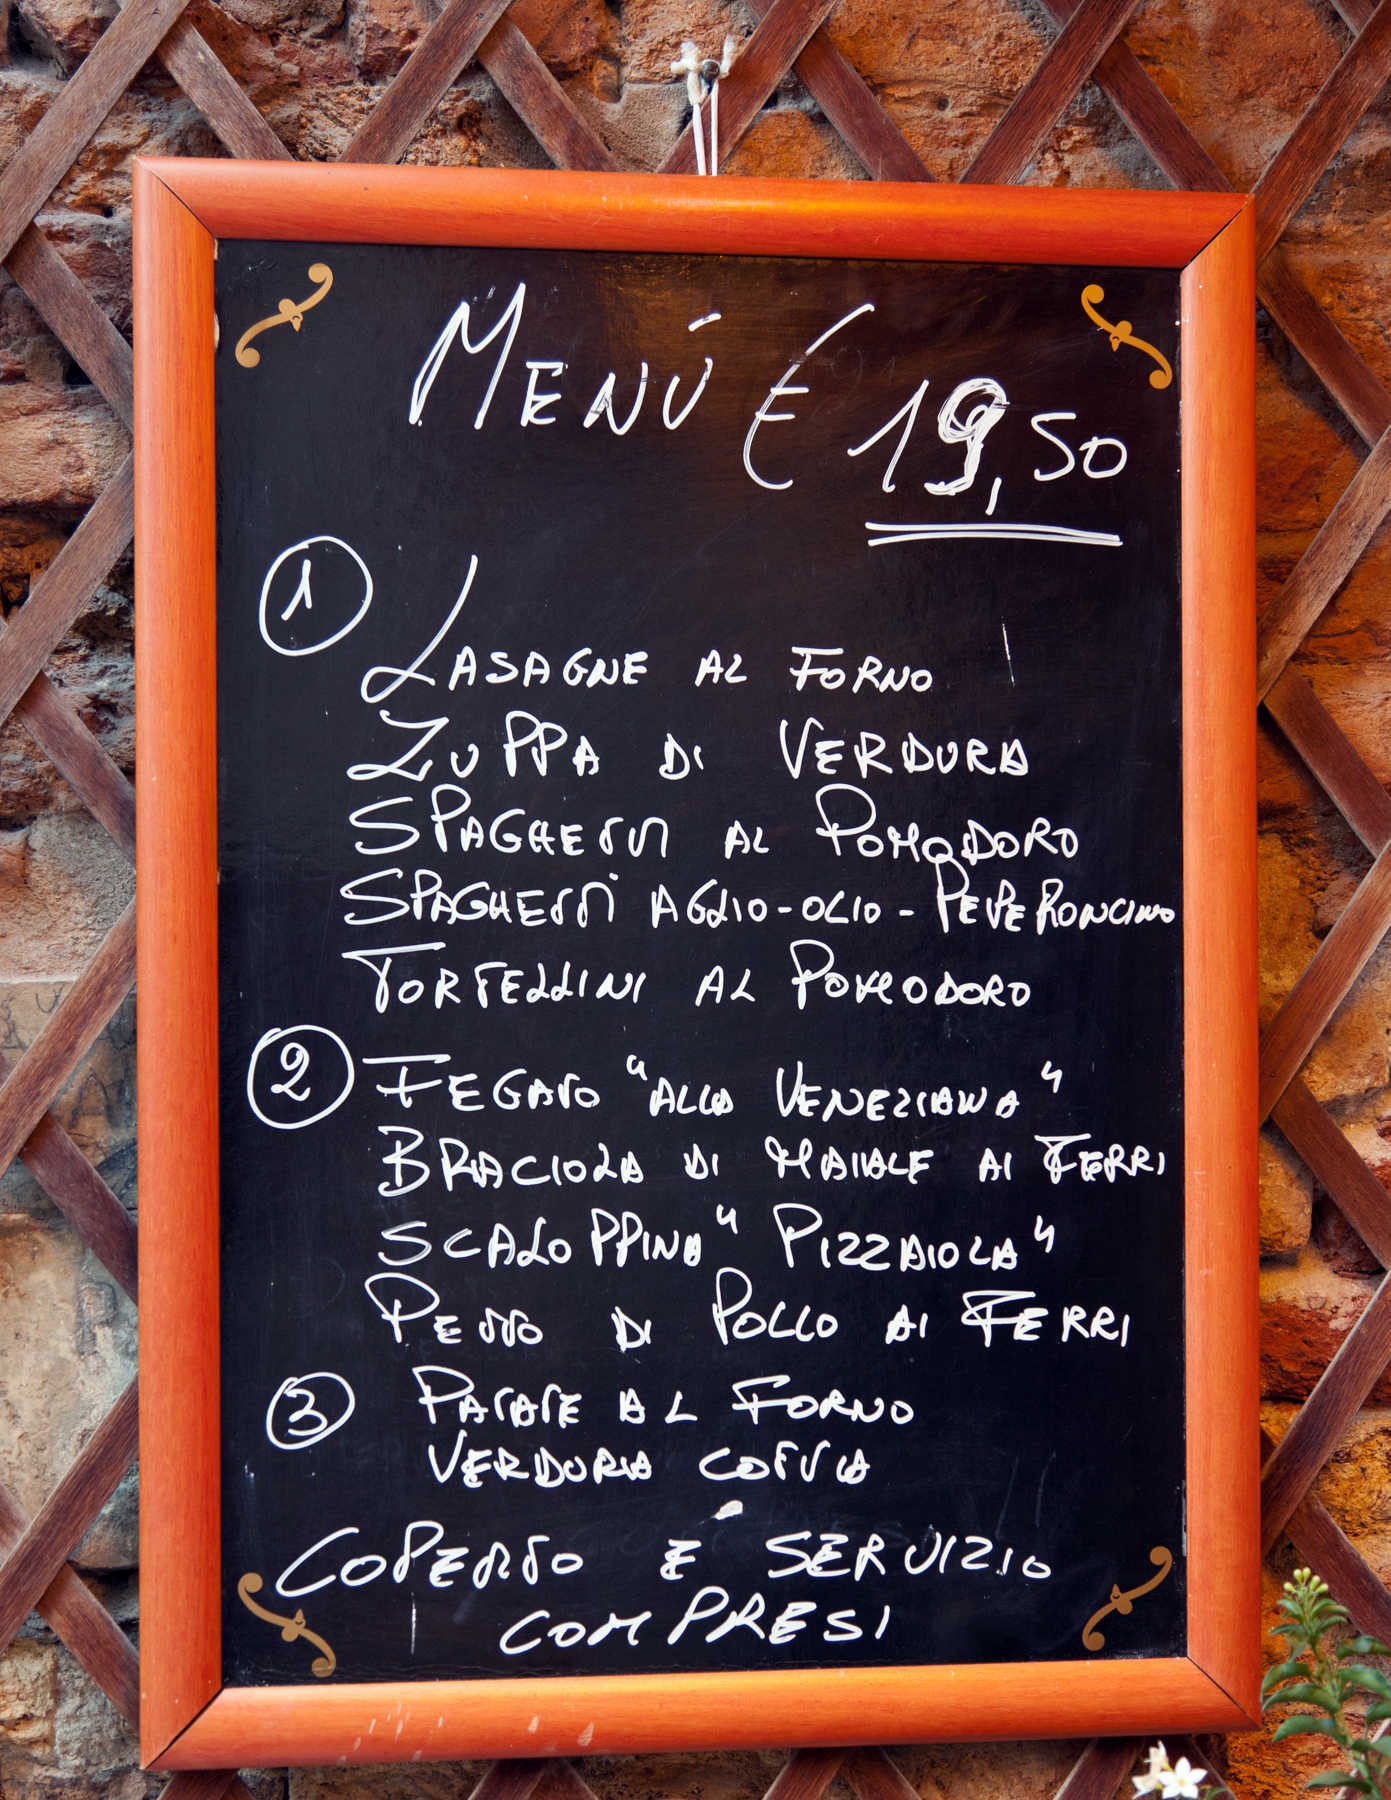 MENÙ € 19,50
1
LASAGNE AL FORNO
ZUPPA DI VERDURA
SPAGHETTI AL POMODORO
SPAGHETTI AGLIO-OLIO-PEPERONCINO
TORTELLINI AL POMODORO
2 FEGATO "ALLA VENEZIANA"
BRACIOLA DI MAIALE AI FERRI
SCALOPPINA "PIZZAIOLA"
PETTO DI POLLO AI FERRI
3 PATATE AL FORNO
VERDURA COTTA
COPERTO E SERVIZIO
COMPRESI